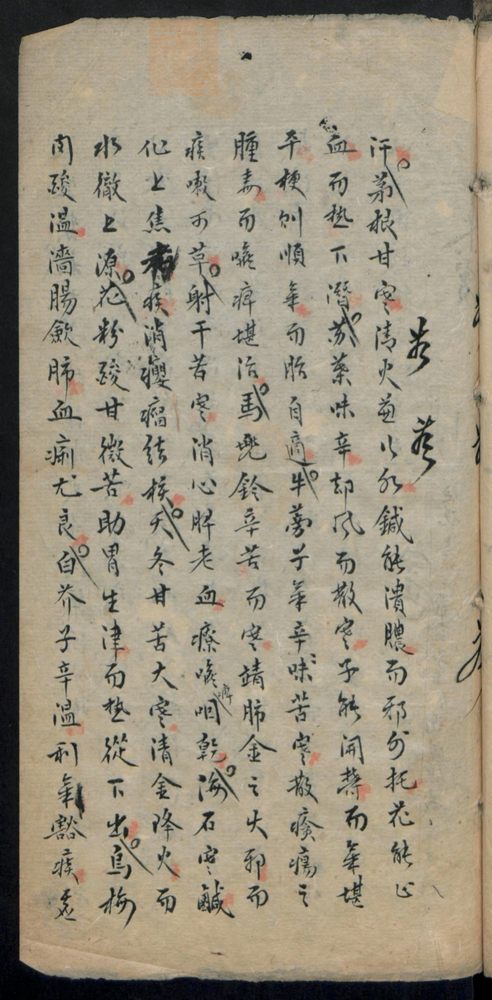 汗茅根甘寒清火益以水鍼能潰膿而邪外托花能止
血而热下潛苏葉味辛却風而散寒子能開鬱而氣堪
平梗則順氣而胎自適牛蒡子氣辛味苦寒散瘡瘍之
腫毒而喉痺堪治馬兜鈴辛苦而寒靖肺金之火邪而
痰嗽可草射干苦寒消心脾老血療喉痺咽乾海石寒鹹
化上焦痰消癭瘤結核天冬甘苦大寒清金降火而
水徹上源花粉酸甘微苦助胃生津而热從下出烏梅
肉酸温濇腸歛肺血痢尤良白芥子辛温利氣豁痰